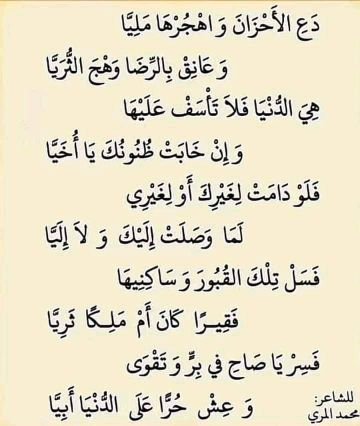 دَعِ الأَحْزَانَ وَ اهْجُرْهَا مَلِيَّا
وَ عَانِقْ بِالرِّضَا وَهْجَ الثُّرَيَّا
هِيَ الدُّنْيَا فَلاَ تَأْسَفْ عَلَيْهَا
وَ إِنْ خَابَتْ ظُنُونُكَ يَا أُخَيَّا
فَلَوْ دَامَتْ لِغَيْرِكَ أَوْ لِغَيْرِي
لَمَا وَصَلَتْ إِلَيْكَ وَ لاَ إِلَيَّا
فَسَلْ تِلْكَ القُبُورَ وَ سَاكِنِيهَا
فَقِيـرًا كَانَ أَمْ مَلِـكًا ثَرِيَّا
فَسِرْ يَا صَاحِ فِي بِرٍّ وَ تَقْوَى
وَ عِشْ حُرًّا عَلَى الدُّنْيَا أَبِيَّا
للشاعر:
محمد المري